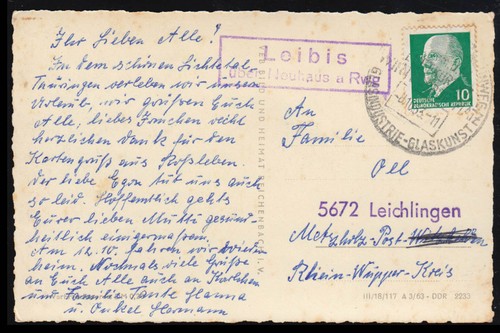 Ihr Lieben Alle!
In dem schönen Lichtetal
Thüringen verleben wir unseren
Urlaub, wir grüßen Euch
Alle, liebes Inchen recht
herzlichen Dank für den
Kartengruß aus Roßleben.
Der liebe Egon tut uns auch
so leid. Hoffentlich gehts
Eurer lieben Mutti gesund-
heitlich einigermaßen.
Am 12.10. fahren wir wieder
heim. Nochmals viele Grüße
an Euch Alle auch an Karlchen
und Familie Tante Hanna
u. Onkel Hermann
VERLAG BILD UND HEIMAT REICHENBACH I. V.
Leibis
über Neuhaus a Rwg
DEUTSCHE
DEMOKRATISCHE REPUBLIK
10
GLASINDUSTRIE-GLASKUNST
An
Familie
Oel
5672 Leichlingen
Rhein-Wupper-Kreis
III/18/117 A 3/63 - DDR 2233